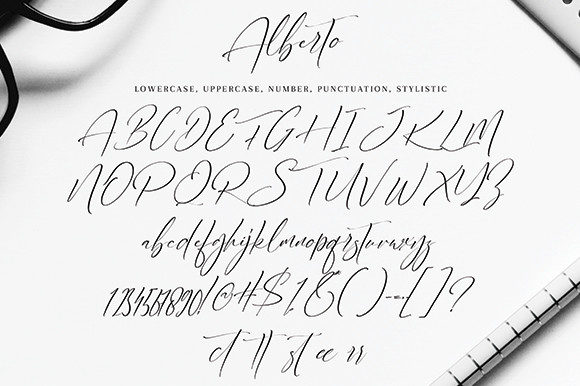 Alberto
LOWERCASE, UPPERCASE, NUMBER, PUNCTUATION, STYLISTIC
ABCDEFGHIJKLM
NOPQRSTUVWXYZ
abcdefghijklmnopqrstuvwxyz
1234567890!@#$%&()-[]?
ct tt st ee rr